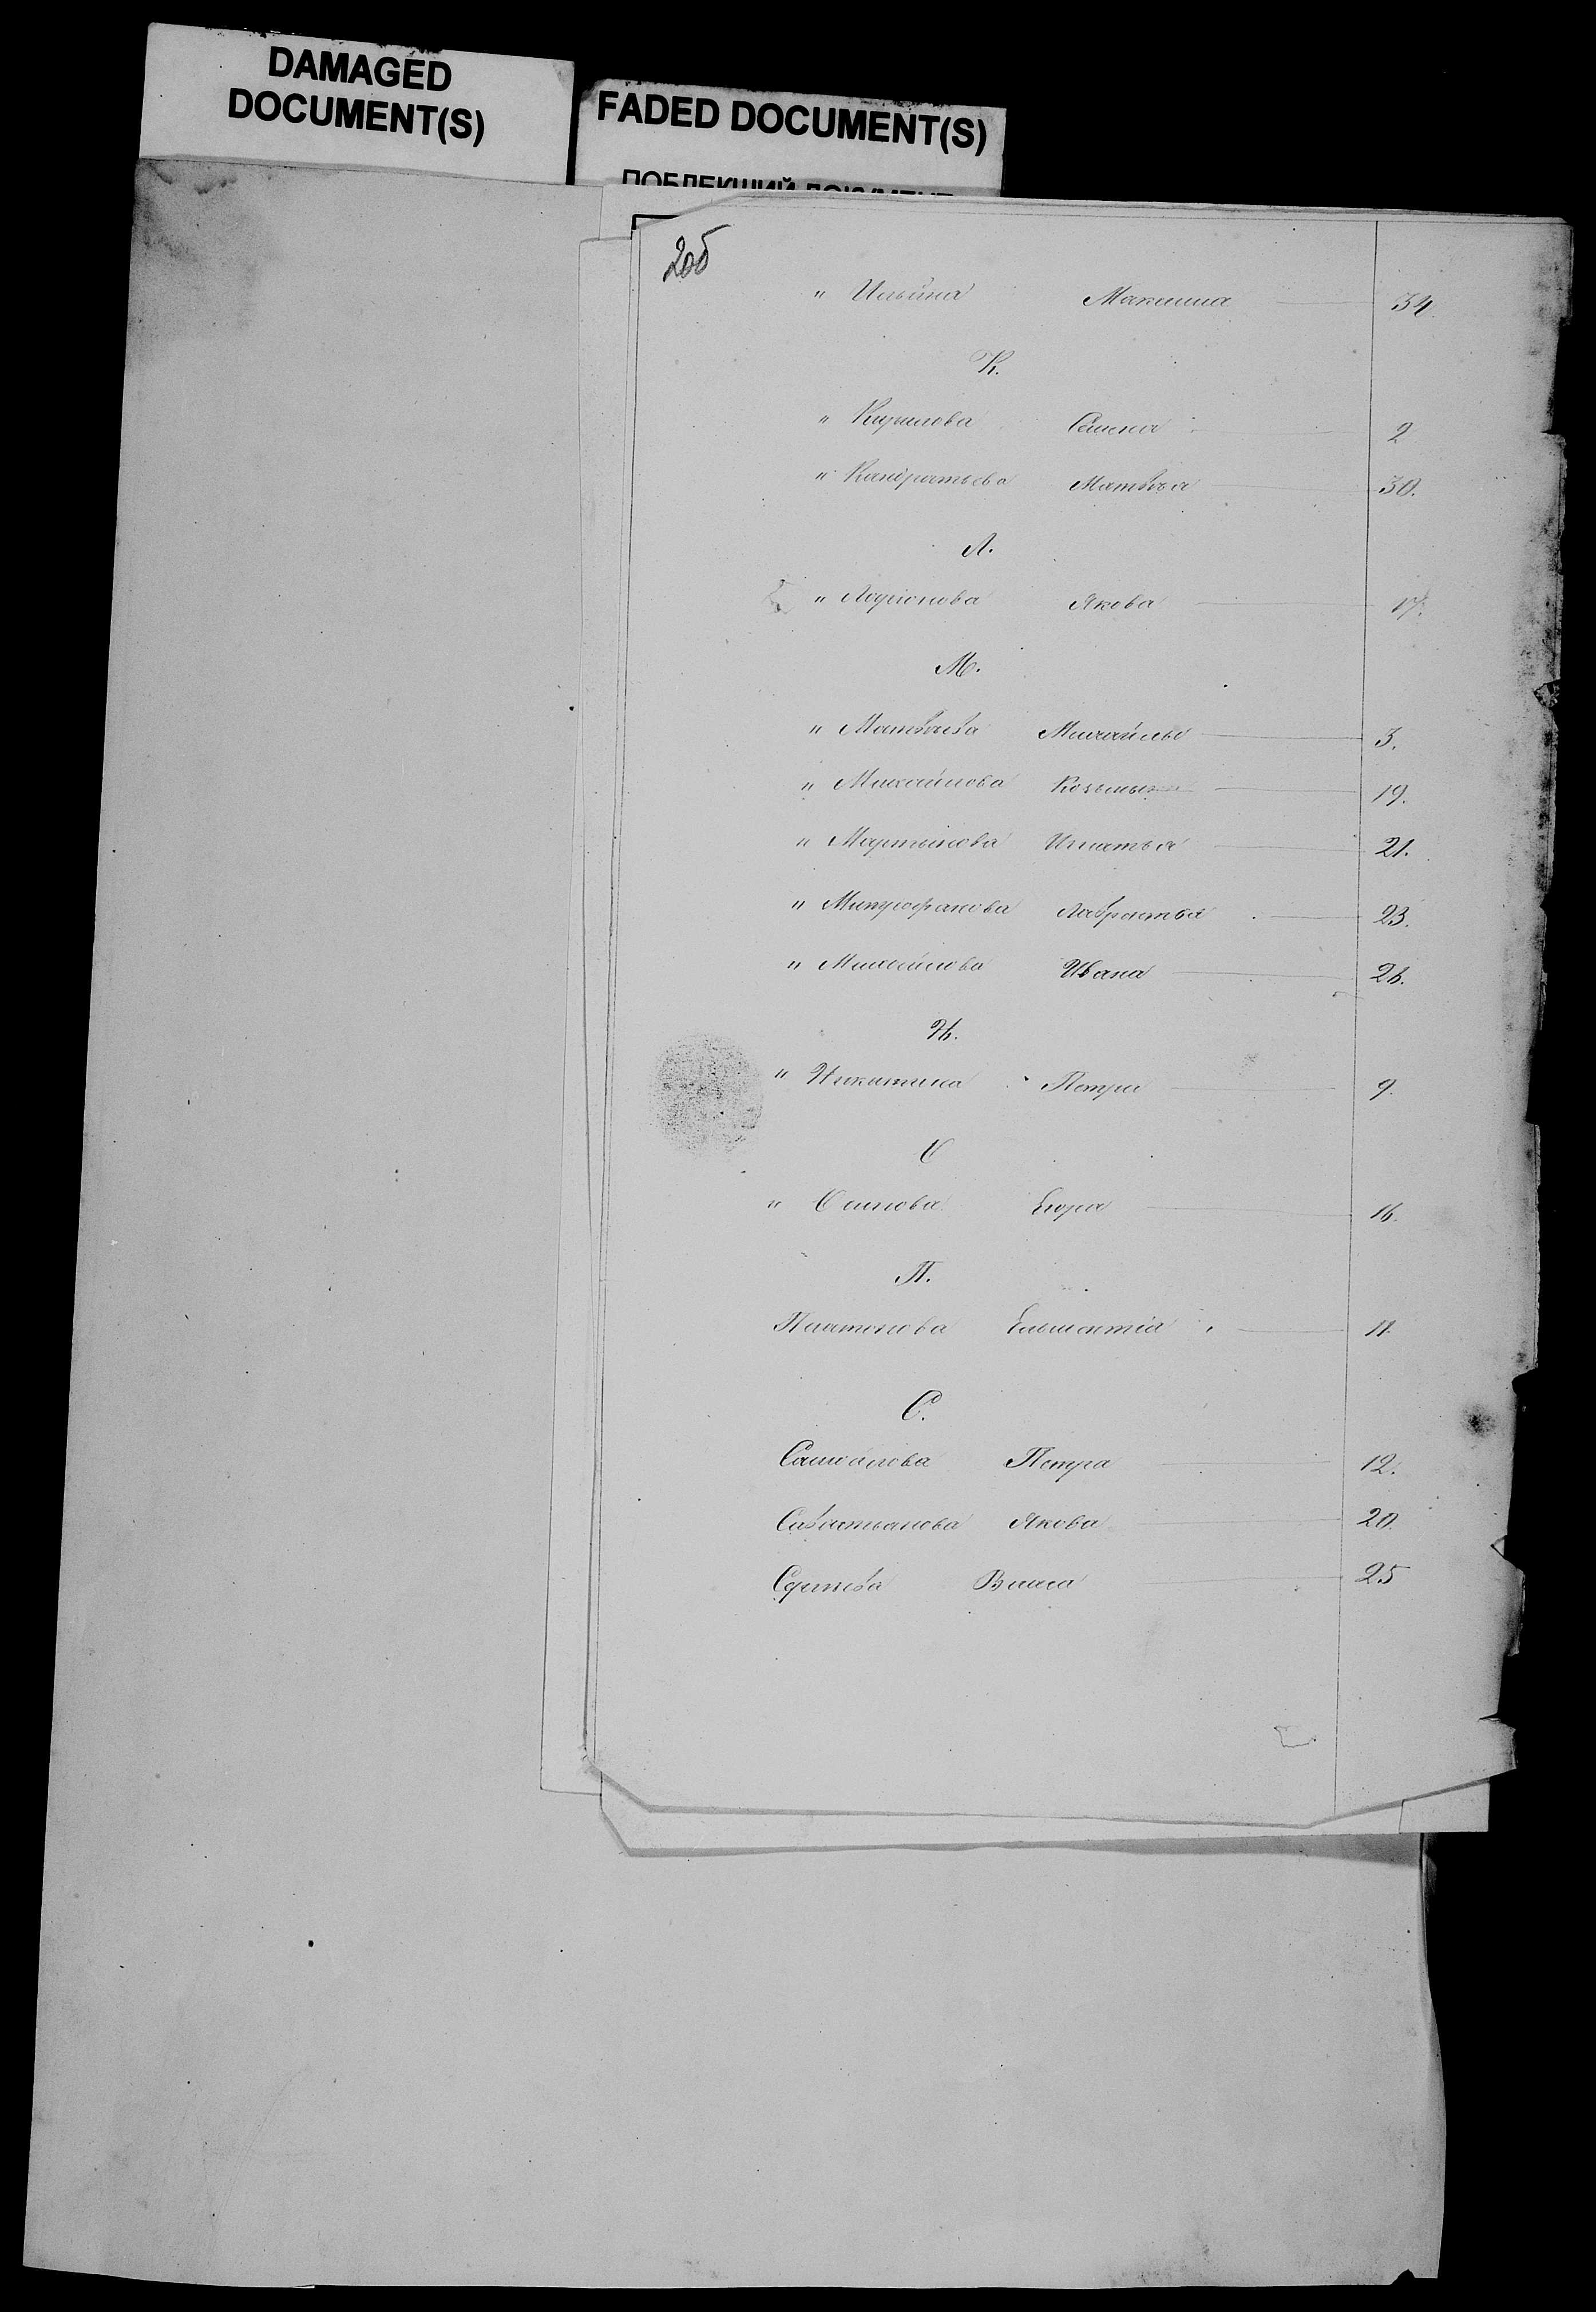 DAMAGED
DOCUMENT(S)
FADED DOCUMENT(S)
ПОБЛЕКШИЙ ДОКУМЕНТ
2об
" Ильина Максима 34.
К.
" Кирилова Семена 2
" Кандратьева Матвѣя 30.
Л.
" Ларіонова Якова 17.
М.
" Матвѣева Михайлы 3.
" Михайлова Козьмы 19.
" Мартынова Игнатья 21.
" Митрофанова 23.
" Михайлова Ивана 26.
Н.
" Никитина Петра 9.
О
" Осипова Егора 16.
П.
Платонова 11.
С.
Самойлова Петра 12.
Савастьянова Якова 20.
Сергѣева Власа 25